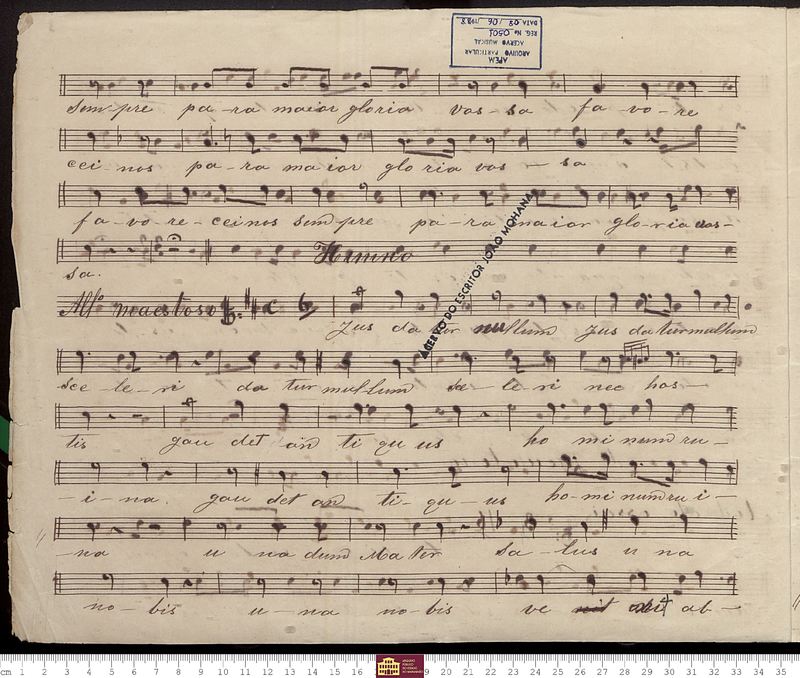 APEM
ARQUIVO PARTICULAR
ACERVO MUSICAL
REG. Nº 0501
DATA 08 / 06 /
sempre pa-ra maior gloria vos-sa fa-vo-re
cei-nos pa-ra maior gloria vos-sa
fa-vo-re-ceinos sempre pa-ra maior glo-ria vos-
sa. Himno
ACERVO DO ESCRITOR JOÃO MOHANA
All.º maestoso
Jus da tur nullum Jus da tur nullum
sce-le-ri da tur nullum sce-le-ri nec hos-
tis gau det an ti qu us ho mi num ru-
-i-na. gau det an ti-qu-us ho-mi num ru i-
-na u na dum Ma ter sa-lus u na
no-bis u-na no-bis ve ab-
cm 1 2 3 4 5 6 7 8 9 10 11 12 13 14 15 16 19 20 21 22 23 24 25 26 27 28 29 30 31 32 33 34 35